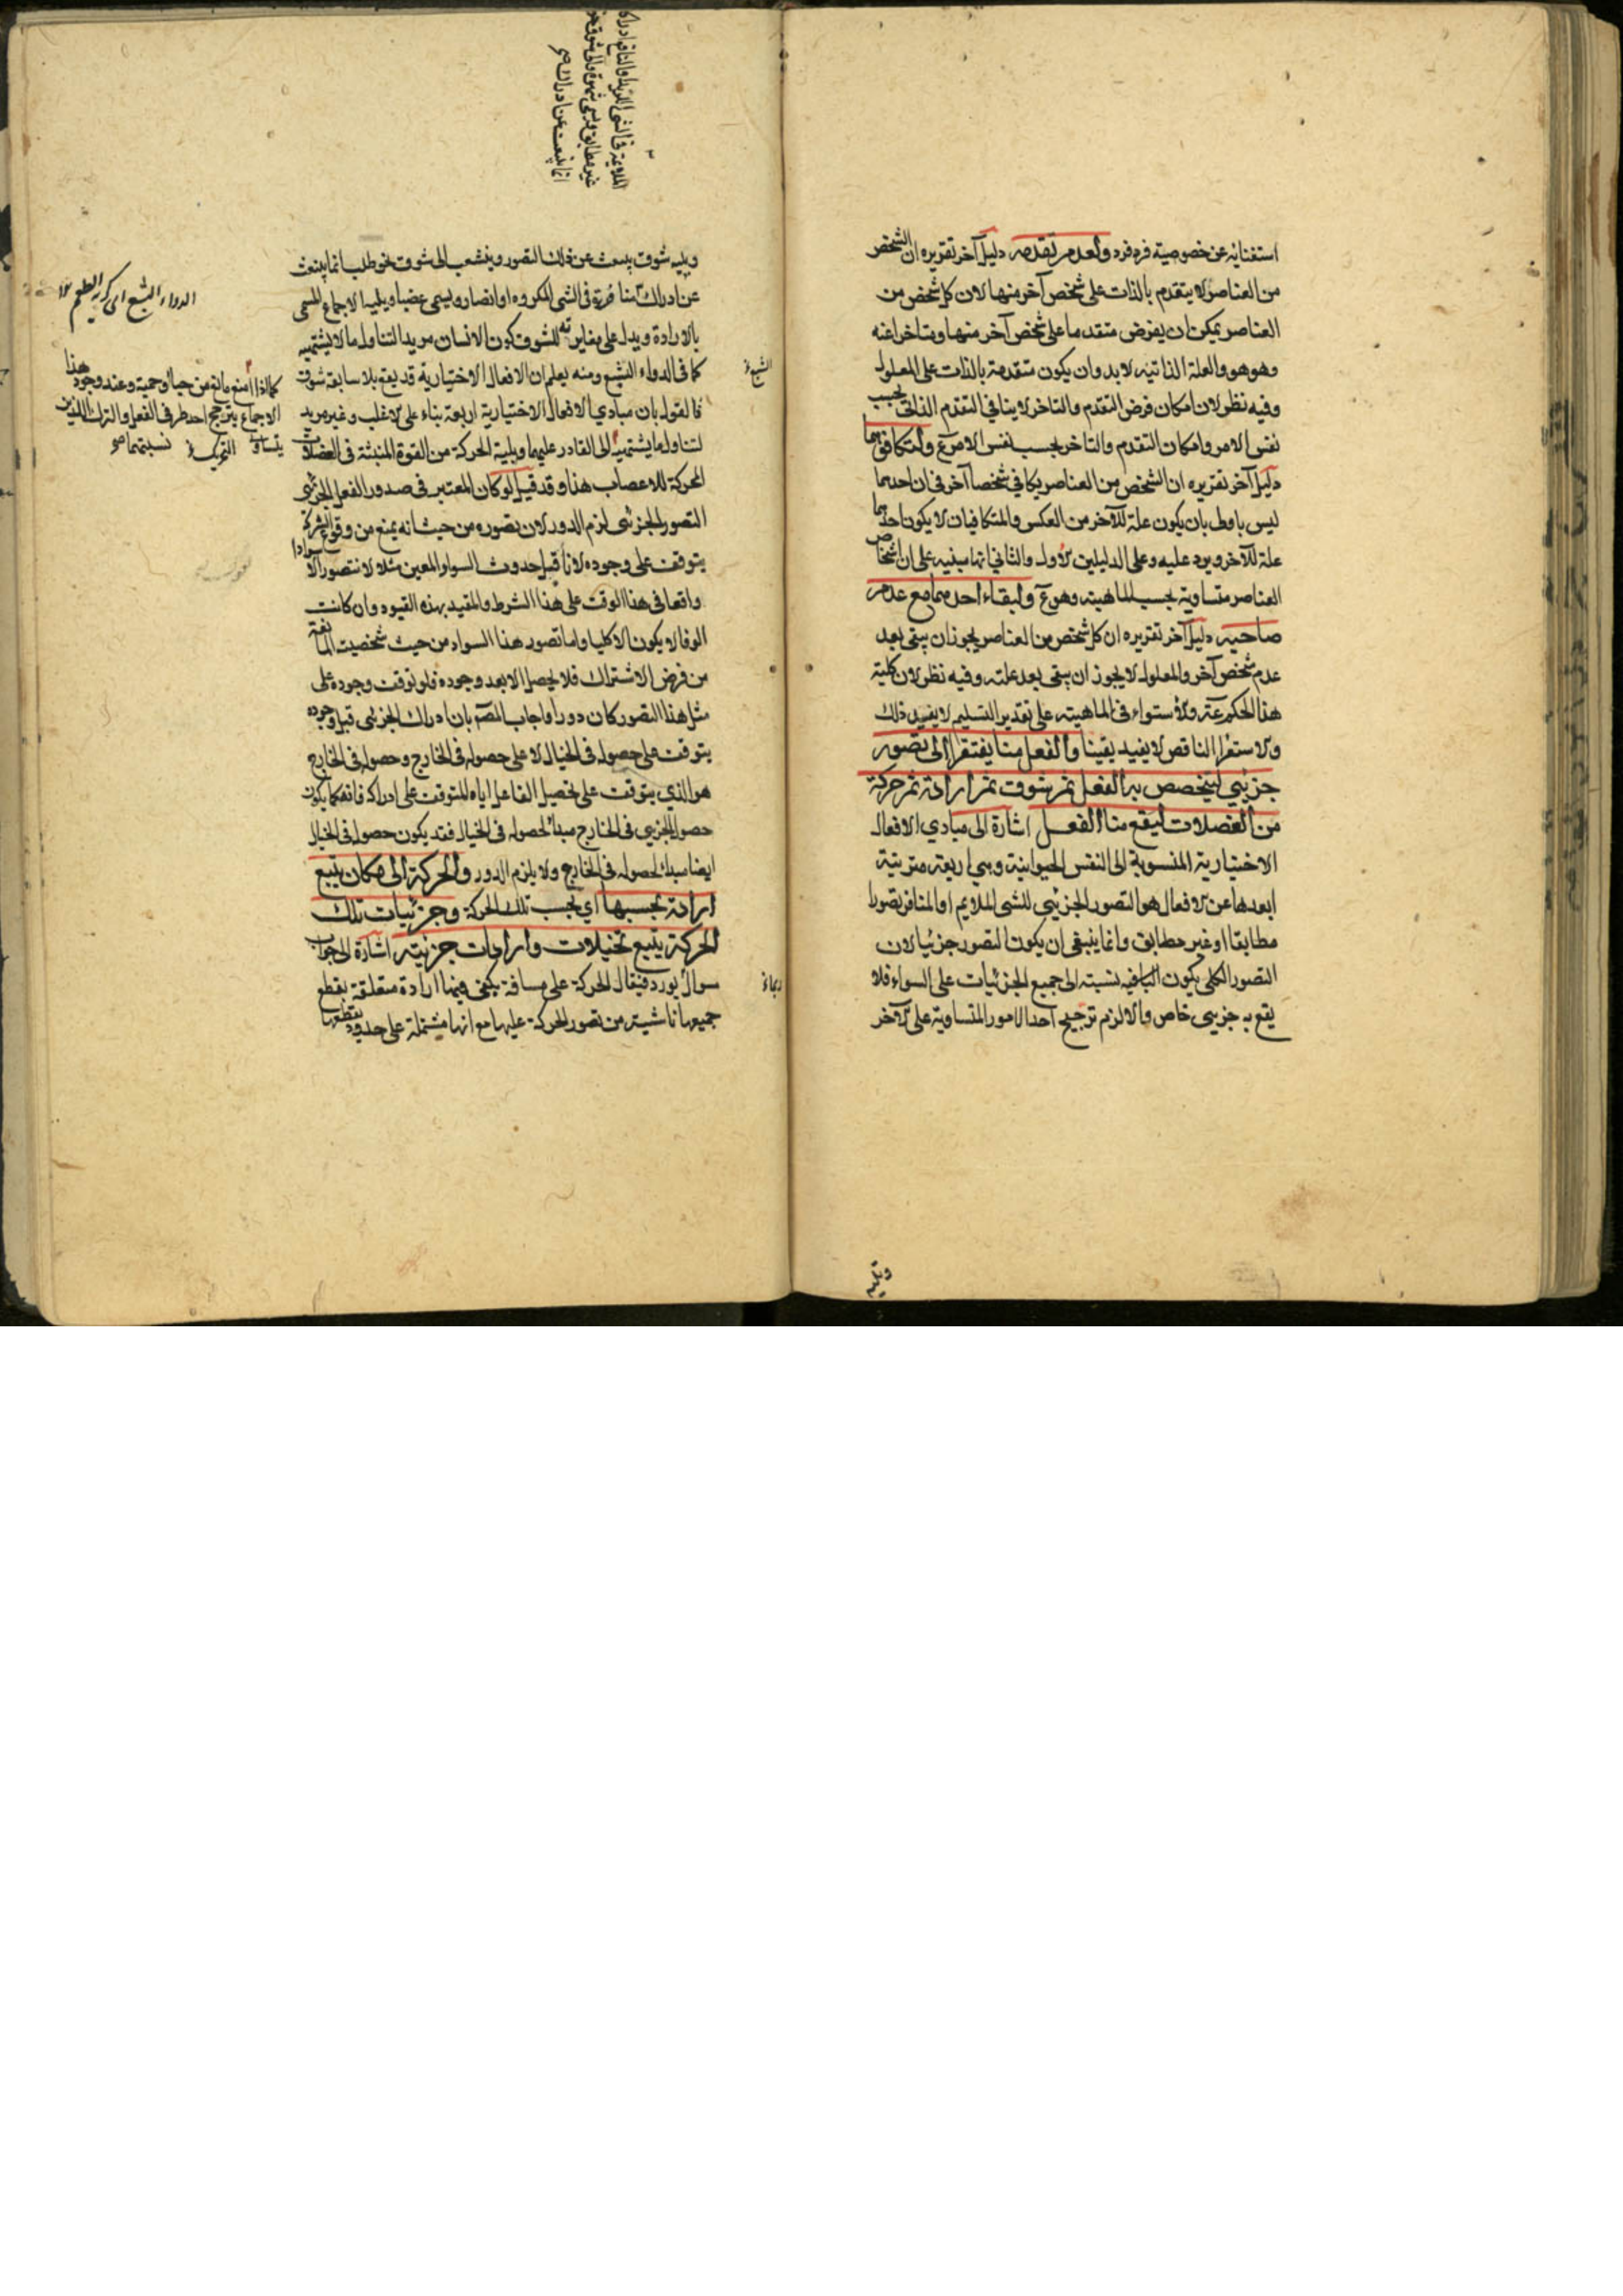 استغنائه عن خصوصية فرد فرد ولعدم تقدمه دليل آخر تقريره ان الشخص
من العناصر لا يتقدم بالذات على شخص آخر منها لان كل شخص من
العناصر يمكن ان يفرض متقدما على شخص آخر منها ومتاخرا عنه
وهو هو والعلة الذاتيه لا بد وان يكون متقدمة بالذات على المعلول
وفيه نظر لان امكان فرض التقدم والتاخر لا ينافي التقدم الذاتي بحسب
نفس الامر وامكان التقدم والتاخر بحسب نفس الامر ع ولتكافئهما
دليل آخر تقريره ان الشخص من العناصر يكافي شخصا آخر في ان احدهما
ليس باولى بان يكون علة للآخر من العكس والمتكافيان لا يكون احدهما
علة للآخر ويرد عليه وعلى الدليلين الاول والثاني انها مبنيه على ان اشخاص
العناصر متساوية بحسب الماهيته وهو ع ولبقاء احدهما مع عدم
صاحبه دليل آخر تقريره ان كل شخص من العناصر يجوز ان يبقى بعد
عدم شخص آخر والمعلول لا يجوز ان يبقى بعد علته وفيه نظر لان كلية
هذا الحكم ع والاستواء في الماهيته على تقدير التسليم لا يفيد ذلك
والاستقرا الناقص لا يفيد يقينا والفعل منا يفتقر الى تصور
جزئي ليتخصص به الفعل ثم شوق ثم ارادة ثم حركة
من العضلات ليقع منا الفعل اشارة الى مبادي الافعال
الاختيارية المنسوبة الى النفس الحيوانية وهي اربعة مترتبة
ابعدها عن الافعال هو التصور الجزئي للشي الملايم او المنافر تصورا
مطابقا او غير مطابق وانما ينبغي ان يكون التصور جزئيا لان
التصور الكلي يكون نسبته الى جميع الجزئيات على السواء فلا
يقع به جزئي خاص والا لزم ترجيح احد الامور المتساوية على الآخر
ويليه شوق ينبعث عن ذلك التصور وينشعب الى شوق نحو طلب انما ينبعث
عن ادراك منافرة في الشي المكروه او الضار ويسمى غضبا ويليه الاجماع المسمى
بالارادة ويدل على مغايرته للشوق كون الانسان مريدا لتناول ما لا يشتهيه
كما في الدواء البشع ومنه يعلم ان الافعال الاختيارية قد يقع بلا سابقة شوق
فالقول بان مبادي الافعال الاختيارية اربعة بناء على الاغلب وغير مريد
لتناول ما يشتهيه الى القادر عليهما ويليه الحركة من القوة المنبثة في العضلات
المحركة للاعصاب هذا وقد قيل لو كان المعتبر في صدور الفعل الجزئي
التصور الجزئي لزم الدور لان تصوره من حيث انه يمنع من وقوع الشركة
يتوقف على وجوده لانا قبل حدوث السواد المعين مثلا لا نتصور الا سوادا
واقعا في هذا الوقت على هذا الشرط والمقيد بهذه القيود وان كانت
الوفا لا يكون الا كليا واما تصور هذا السواد من حيث شخصيته المانعة
من فرض الاشتراك فلا يحصل الا بعد وجوده فلو توقف وجوده على
مثل هذا التصور كان دورا واجاب المصم بان ادراك الجزئي قبل وجوده
يتوقف على حصوله في الخيال لا على حصوله في الخارج وحصوله في الخارج
هو الذي يتوقف على تحصيل الفاعل اياه المتوقف على ادراكه فانه كما يكون
حصول الجزئي في الخارج مبدأ لحصوله في الخيال فقد يكون حصوله في الخيال
ايضا مبدأ لحصوله في الخارج ولا يلزم الدور والحركة الى مكان يتبع
ارادة بحسبها اي بحسب تلك الحركة وجزئيات تلك
الحركة يتبع تخيلات وارادات جزئية اشارة الى جواب
سوال يورد فيقال الحركة على مسافة يكفي فيها ارادة متعلقة بقطع
جميعها ناشية من تصور الحركة عليها مع انها مشتملة على حدود يقطعها
الدواء البشع اي كريه الطعم
كما اذا منع مانع من حياء وحمية وعند وجود هذا
الاجماع يترجح احد طرفي الفعل والترك اللذين
نسبتهما
الملايمة في الشي اللذيذ او النافع ادراكا
غير مطابق ويسمى شهوة والى شوق نحو
انما ينبعث عن ادراك
البشع